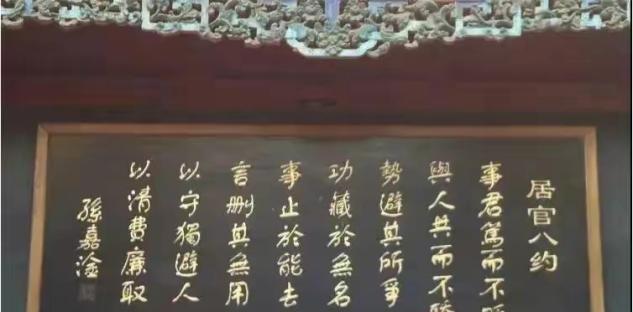 居官八约
事君篤而不
與人共而不
勢避其所爭
功藏於無名
事止於能去
言刪其無用
以守獨避人
以清費廉取
孫嘉淦